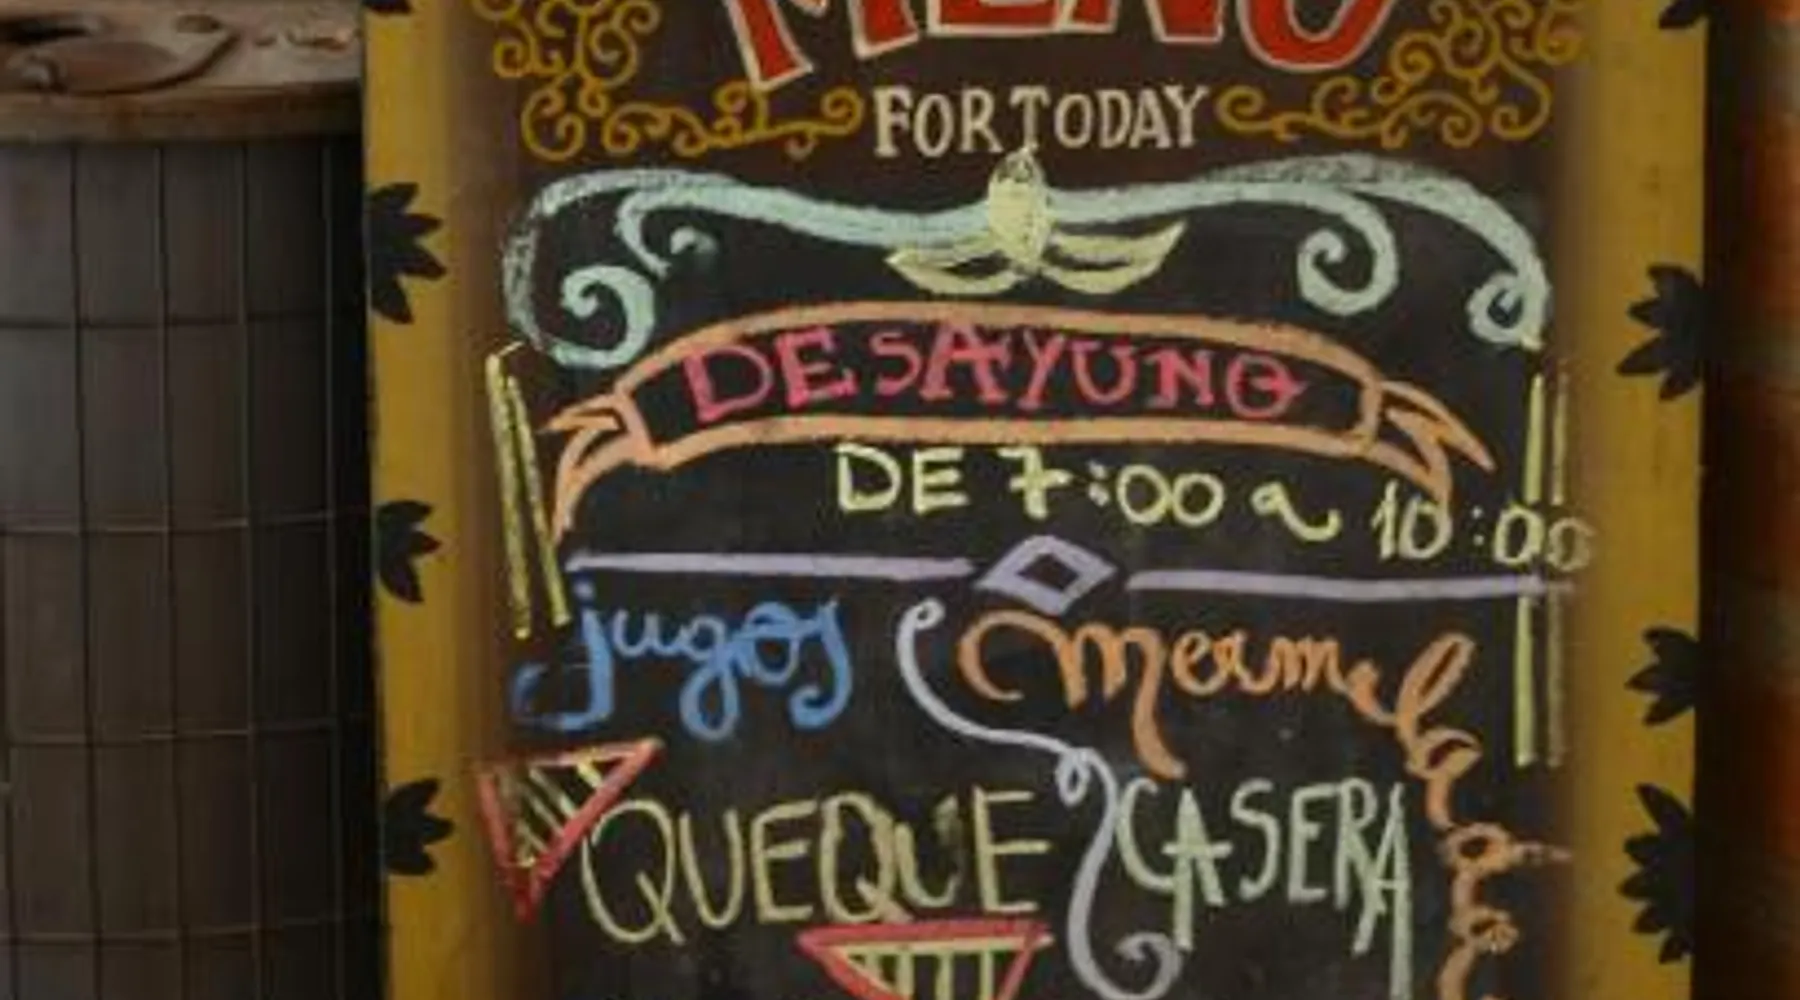 MENU
FOR TODAY
DESAYUNO
DE 7:00 a 10:00
jugos
Mermelada
QUEQUE
CASERA